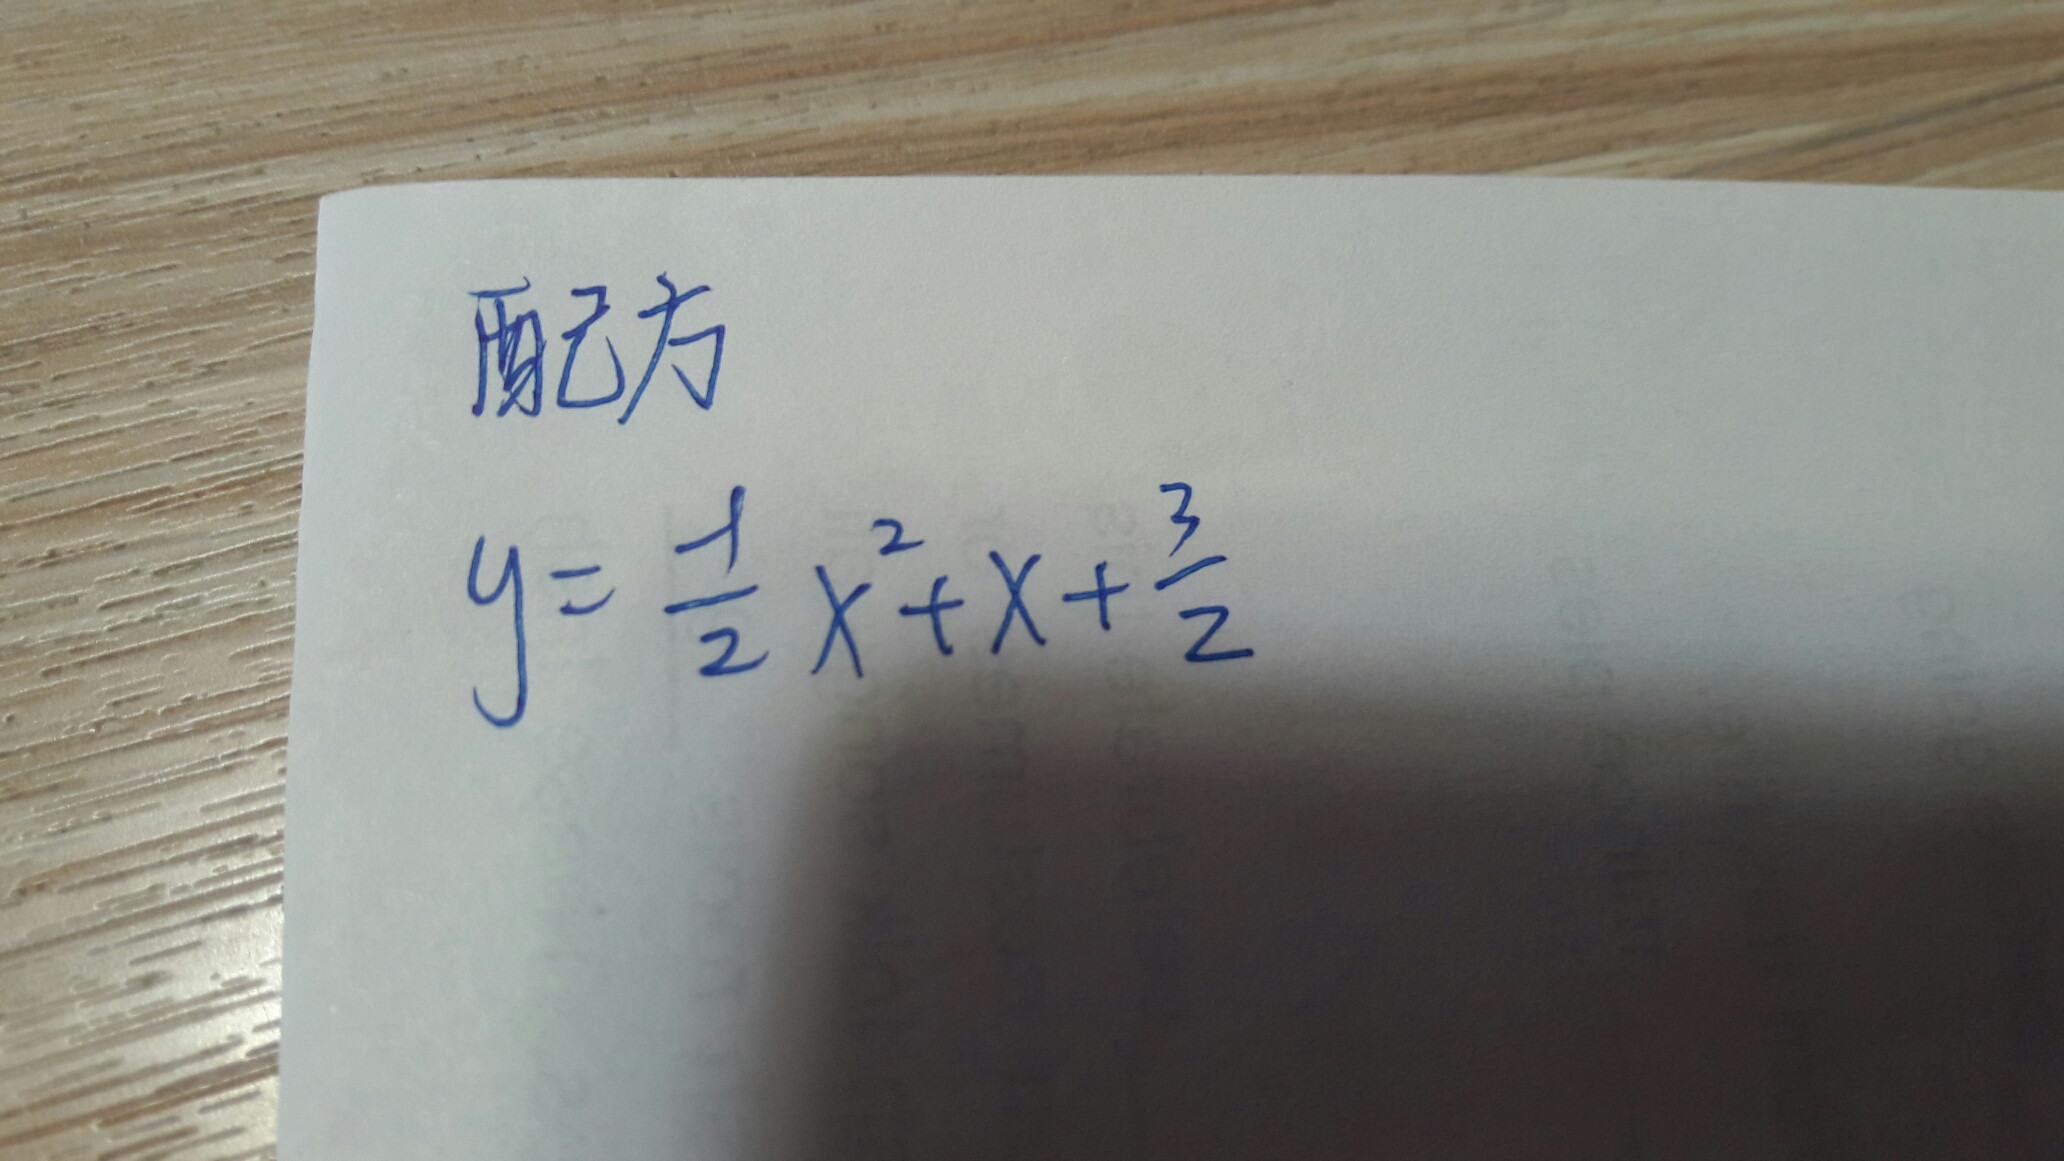 配方
y = -1/2 x² + x + 3/2